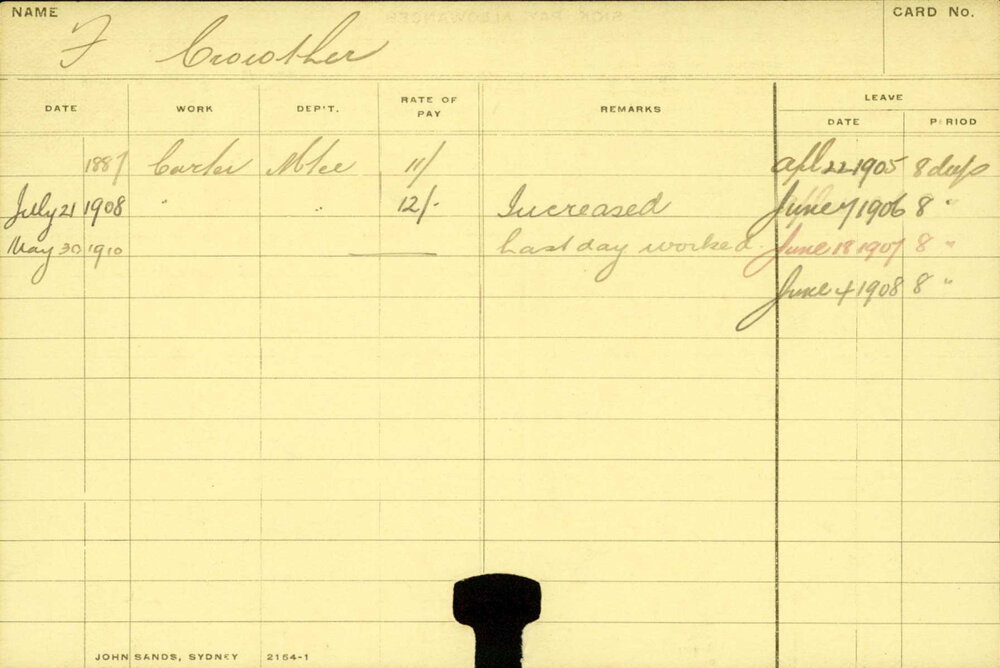 NAME CARD No.
F Crowther
DATE WORK DEP'T. RATE OF PAY REMARKS LEAVE
DATE PERIOD
1887 Carter Mtce 11/ Apl 22 1905 8 days
July 21 1908 " " 12/- Increased June 7 1906 8 "
May 30 1910 — Last day worked. June 18 1907 8 "
June 4 1908 8 "
JOHN SANDS, SYDNEY 2154-1